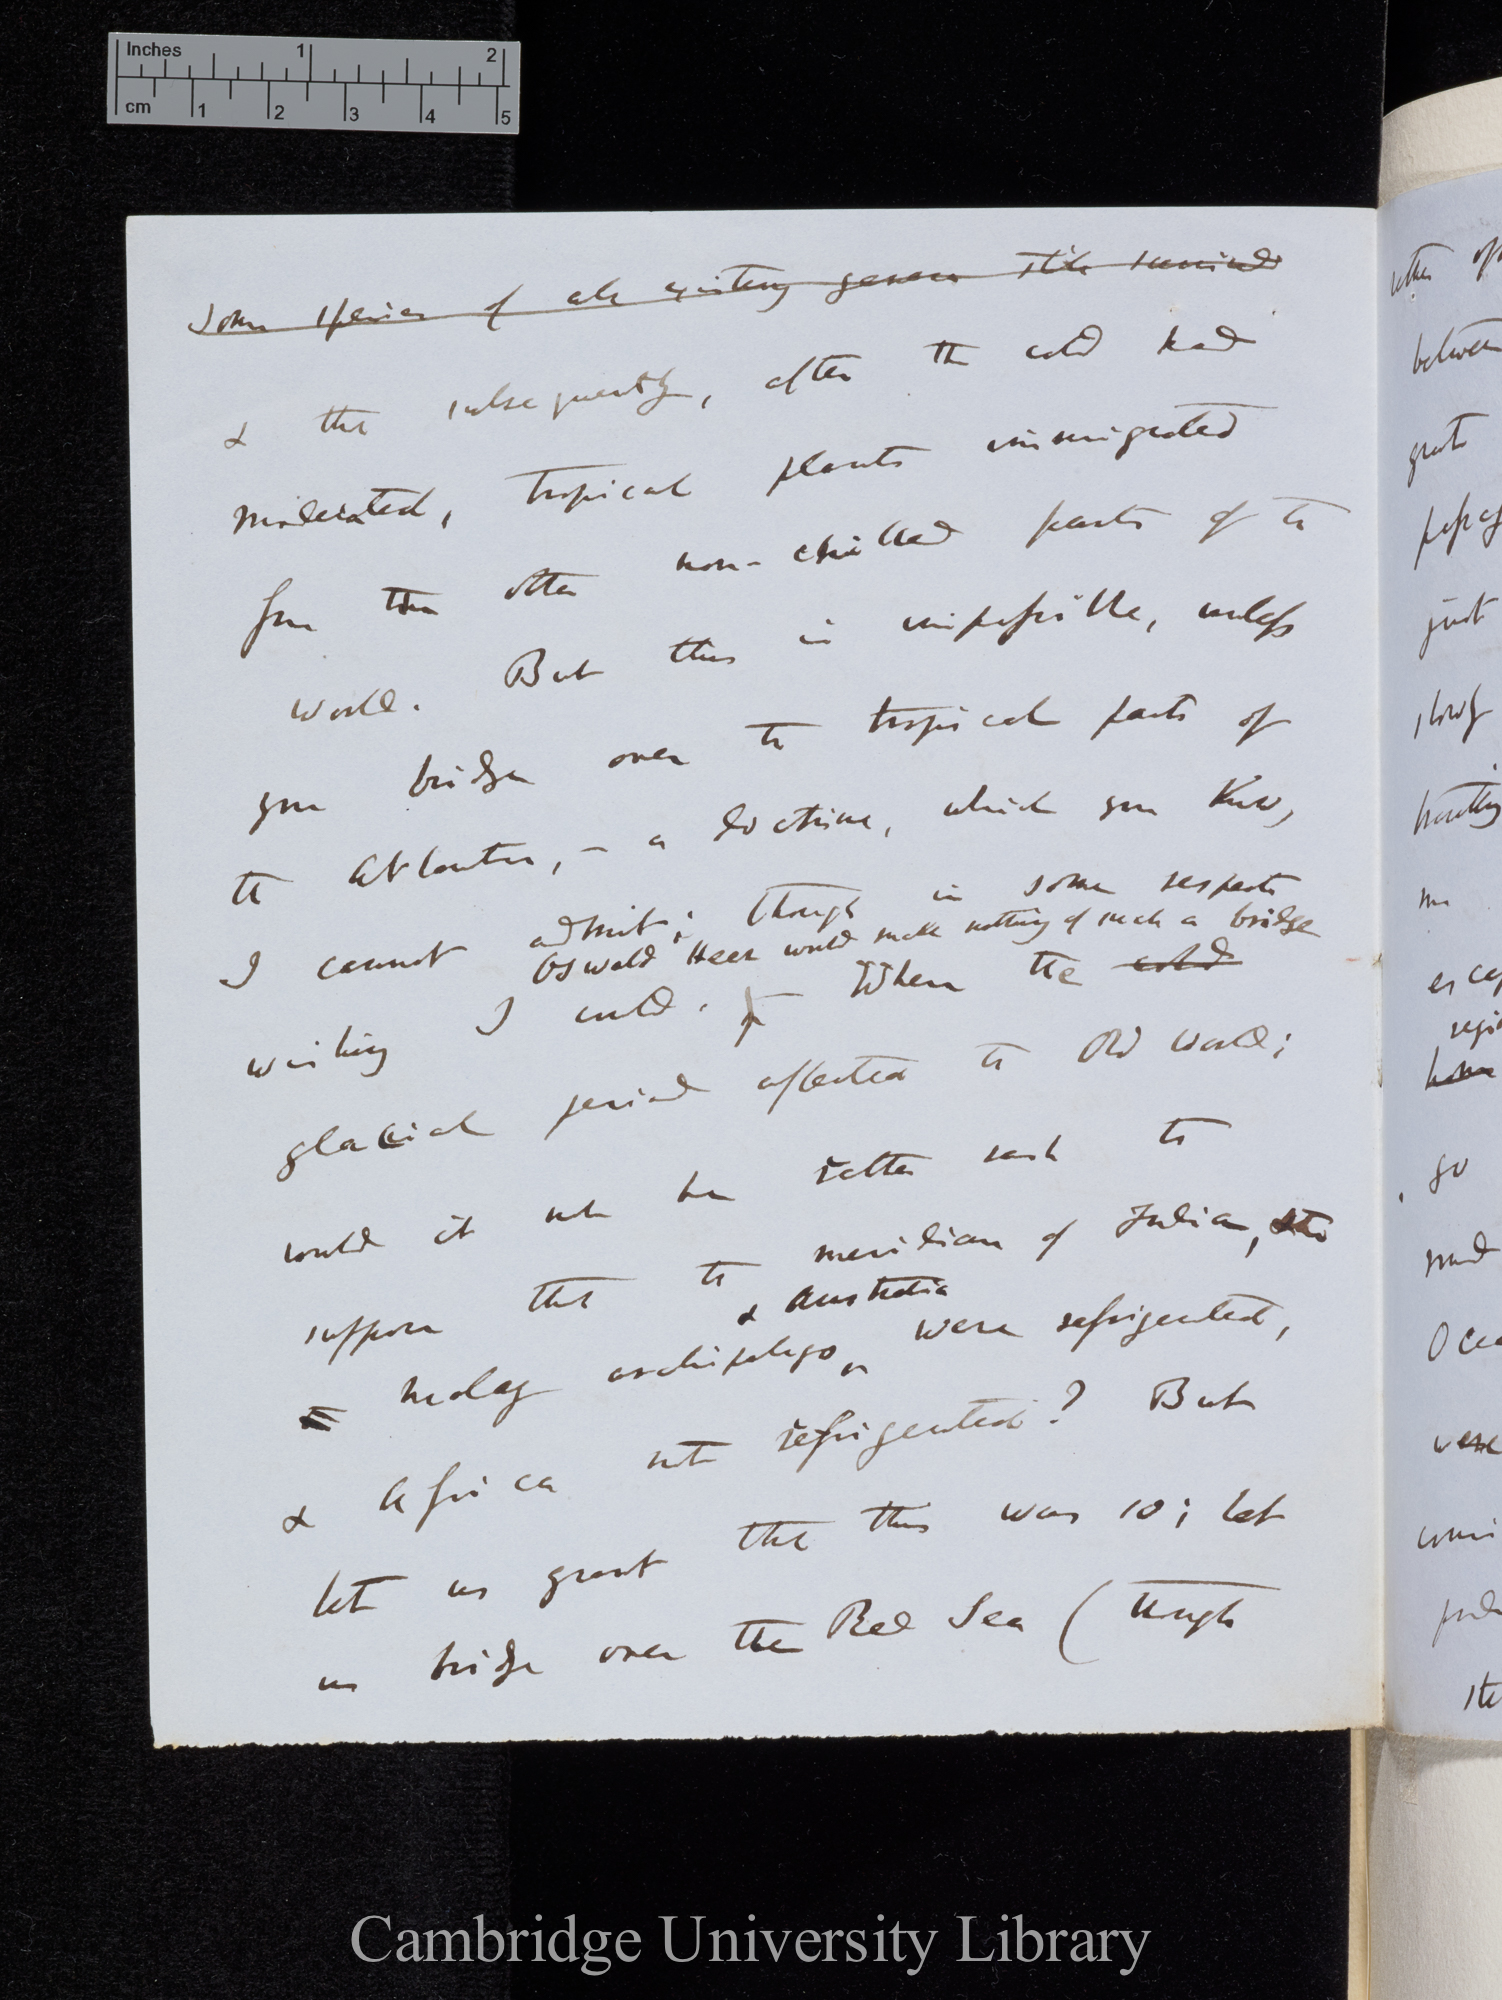 Inches 1 2
cm 1 2 3 4 5
Some species of all existing genera still survived
& that subsequently, after the cold had
moderated, tropical plants immigrated
from the other non-chilled parts of the
world. But this is impossible, unless
you bridge over the tropical parts of
the Atlantic, — a doctrine, which you know,
I cannot admit; though in some respects
Oswald Heer would make nothing of such a bridge
wishing I could. — When the cold
glacial period affected the Old World;
would it not be rather rash to
suppose that the meridian of India, the
& Australia
Malay archipelago were refrigerated,
& Africa not refrigerated? But
let us grant that this was so; let
us bridge over the Red Sea (though
other
between
just
slowly
me
go
and
were
Cambridge University Library